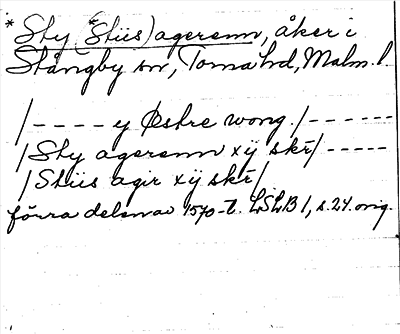 * Sty (*Stiis) agerenn, åker i
Stångby sn, Torna hd, Malm. l.
/---- y Østre wong /------
/Sty agerenn xij skr/-----
/Stiis agir xij skr/
förra delen av 1570-t. LSLB 1, s. 24. orig.